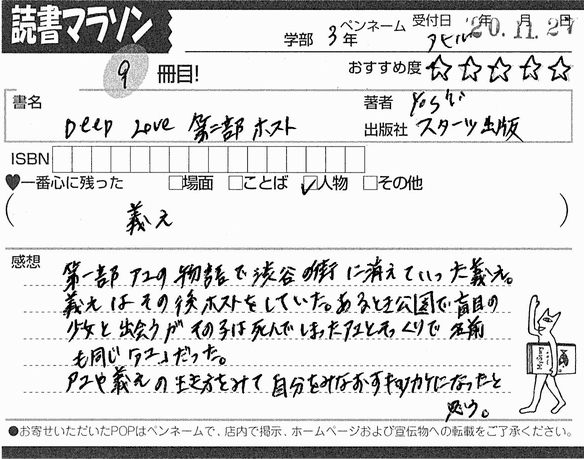 読書マラソン
学部 3年
ペンネーム アヒル
受付日 年 月 日
20.11.27
9 冊目!
おすすめ度 ☆☆☆☆☆
書名
Deep Love 第二部 ホスト
著者 Yoshi
出版社 スターツ出版
ISBN
♥一番心に残った □場面 □ことば ☑人物 □その他
( 義之 )
感想
第一部アユの物語で渋谷の街に消えていった義之。
義之はその後ホストをしていた。あるとき公園で盲目の
少女と出会うがその子は死んでしまったアユとそっくりで名前
も同じ「アユ」だった。
アユや義之の生き方をみて自分をみなおすキッカケになったと
思う。
●お寄せいただいたPOPはペンネームで、店内で掲示、ホームページおよび宣伝物への転載をご了承ください。